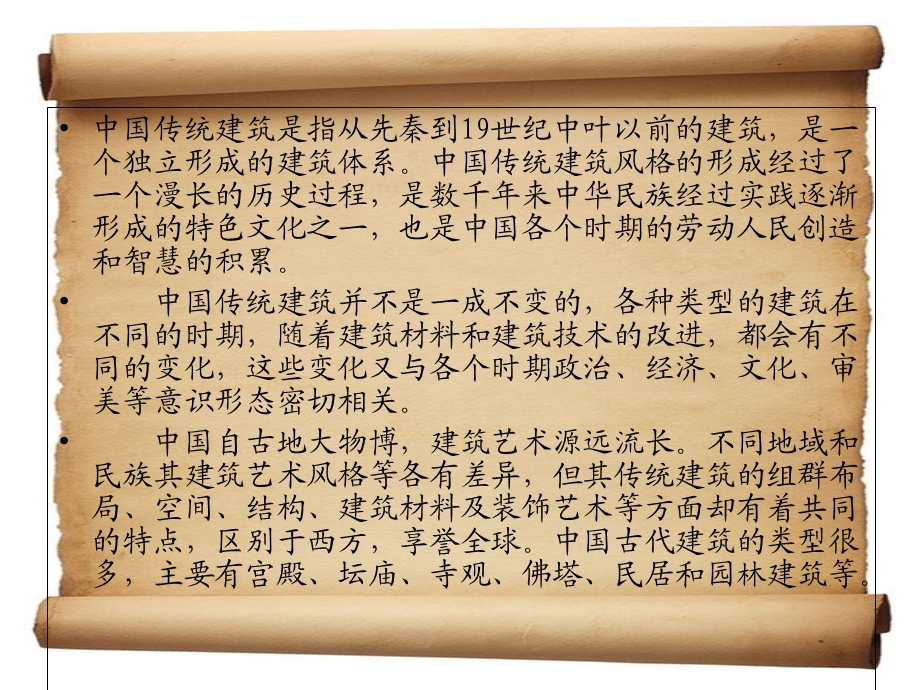 • 中国传统建筑是指从先秦到19世纪中叶以前的建筑，是一
个独立形成的建筑体系。中国传统建筑风格的形成经过了
一个漫长的历史过程，是数千年来中华民族经过实践逐渐
形成的特色文化之一，也是中国各个时期的劳动人民创造
和智慧的积累。
• 中国传统建筑并不是一成不变的，各种类型的建筑在
不同的时期，随着建筑材料和建筑技术的改进，都会有不
同的变化，这些变化又与各个时期政治、经济、文化、审
美等意识形态密切相关。
• 中国自古地大物博，建筑艺术源远流长。不同地域和
民族其建筑艺术风格等各有差异，但其传统建筑的组群布
局、空间、结构、建筑材料及装饰艺术等方面却有着共同
的特点，区别于西方，享誉全球。中国古代建筑的类型很
多，主要有宫殿、坛庙、寺观、佛塔、民居和园林建筑等。